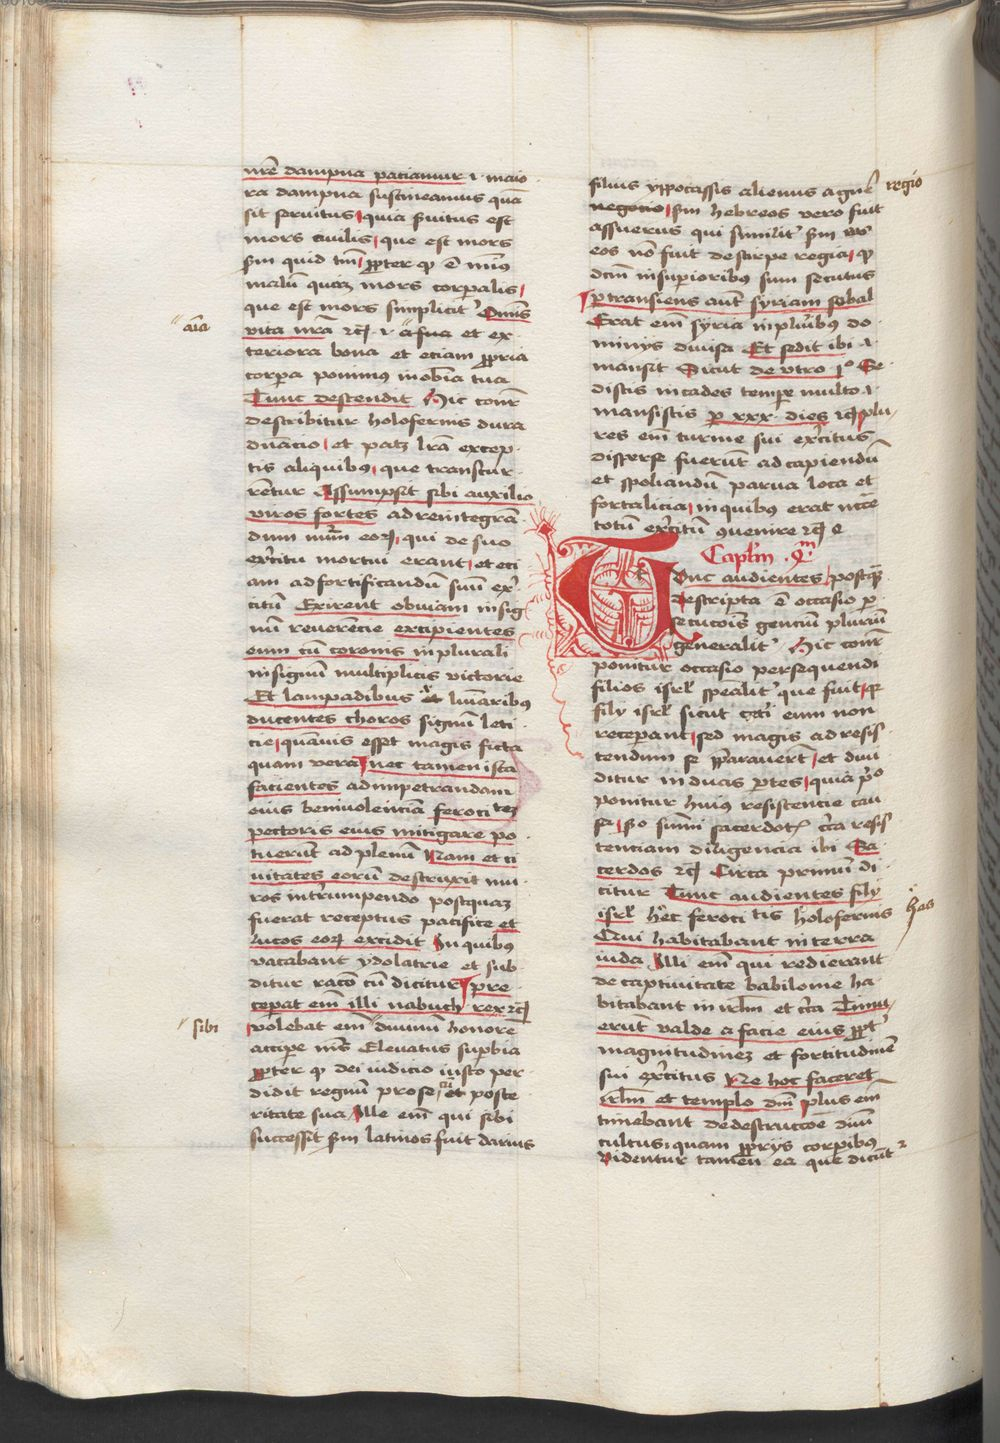 nr̄e dampna paciamur .i. maio
ra dampna sustineamus quā
sit seruitus quia s̄uitus est
mors ciuilis que est mors
s̄m quid tm̄ ꝓpter qđ ē min9
malū quaꝫ mors corporalis
que est mors simplicit' Om̄is
vita nr̄a ⁊cꝫ .i. a͞ia sua et ex
teriora bona et eciam ꝓpria
corpora ponimus in ob̄ia tua
Tunc descendit Hic conr̄
describitur holofernis dura
et patꝫ lr̄a excep
tis aliquibus que transcur
rentur Assumpsit sibi auxilio
viros fortes ad reintegran
dum num̄ eorꝫ qui de suo
ex͛citu mortui erant et eci
am ad fortificandū suū ex͛
citū Exirent obuiam in sig
nū reuerencie excipientes
eum cū coronis in plurali
in signum multiplicis victorie
Et lampadibus luīaribus
ducentes choros signū leti
cie quāuis esset magis ficta
quam vera nec tamen ista
facientes ad impetrandam
eius beniuolenciā ferocitatē
pectoris eius mitigare po
tuerūt ad plenū Nam et ci
uitates eorū destruxit mu
ros int͛rumpendo postquaꝫ
fuerat receptus pacifice et
lucos eorꝫ excidit In quibus
vacabant ydolatrie et sub
ditur racō cū dicitur pre
ceperat em̄ illi nabuch rex ⁊cꝫ
volebat em̄ diuinū honorē
sibi
accipe Eleuatus sup͛bia
ꝓpter qđ dei iudicio iusto per
didit regnū pro se et poste
ritate sua Ille em̄ qui sibi
successit s̄m latinos fuit darius
filius ypocassis alienus a gn͛e regio
negocio s̄m hebreos vero fuit
assuerus qui similit' s̄m
eos nō fuit de stirpe regia qđ
dcm̄ in superioribus sum secutus
ꝑtransiens aut̄ syriam sobal
Erat em̄ syria in plurib9 do
minys diuisa Et sedit ibi .i.
mansit Sicut deutro 1o Se
distis in cades tempe multo .i.
mansistis ꝑ xxx dies ⁊cꝫ plu
res em̄ turme sui ex͛citus
disperse fuerūt ad capiendū
et spoliandū parua loca et
fortalicia in quibus erat
totū ex͛citū 9uenire ⁊cꝫ
Caplm̄ .4m
Tunc audientes postqꝫ
descripta ē occasio ꝑ
secucōis genciū pluriū
generalit' Hic conr̄
ponitur occasio persequendi
filios isrl̄ sp̄ealit' que fuit qꝛ
fily isrl̄ sicut eum non
receperant sed magis ad resis
tendum se p̄parauerūt et diui
ditur in duas ꝑtes quia p͛o
ponitur huius resistencie cau
sa s̄o summi sacerdot͛ c͛ca resis
tenciam diligencia ibi Sa
cerdos ⁊cꝫ Circa primū di
citur Tunc audientes fily
isrl̄ hec ferocitatis holofernis has
Qui habitabant in terra
iuda Illi em̄ qui redierant
de captiuitate babilonie ha
bitabant in irl̄m et c͛ca Timu
erūt valde a facie eius ꝓpt͛
magnitudineꝫ et fortitudinē
sui ex͛citus Ne hoc faceret
irl̄m et templo dn̄i plus em̄
timebant de destruccōe diuī
cultus quam ꝓprys corporibus
Videntur tamen ea que dicūt͛